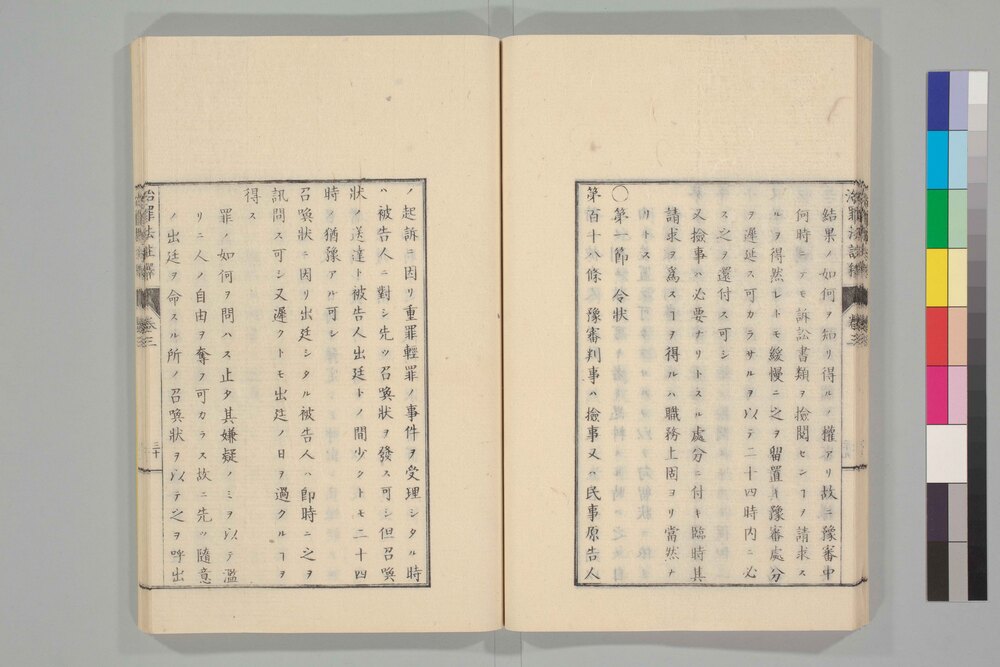 結果ノ如何ヲ知リ得ルノ權アリ故ニ豫審中
何時ニテモ訴訟書類ヲ撿閲センヿヲ請求ス
ルヲ得然レトモ緩慢ニ之ヲ留置キ豫審處分
ヲ遲延ス可カラサルヲ以テ二十四時内ニ必
ス之ヲ還付ス可シ
又撿事ハ必要ナリトスル處分ニ付キ臨時其
請求ヲ爲スヿヲ得ルハ職務上固ヨリ當然ナ
リトス
〇第一節 令状
第百十八條 豫審判事ハ撿事又ハ民事原告人
ノ起訴ニ因リ重罪輕罪ノ事件ヲ受理シタル時
ハ被告人ニ對シ先ツ召喚状ヲ發ス可シ但召喚
状ノ送達ト被告人出廷トノ間少クトモ二十四
時ノ猶豫アル可シ
召喚状ニ因リ出廷シタル被告人ハ即時ニ之ヲ
訊問ス可シ又遲クトモ出廷ノ日ヲ過クルヿヲ
得ス
罪ノ如何ヲ問ハス止タ其嫌疑ノミヲ以テ濫
リニ人ノ自由ヲ奪フ可カラス故ニ先ツ隨意
ノ出廷ヲ命スル所ノ召喚状ヲ以テ之ヲ呼出
治罪法註釋 卷三 三十